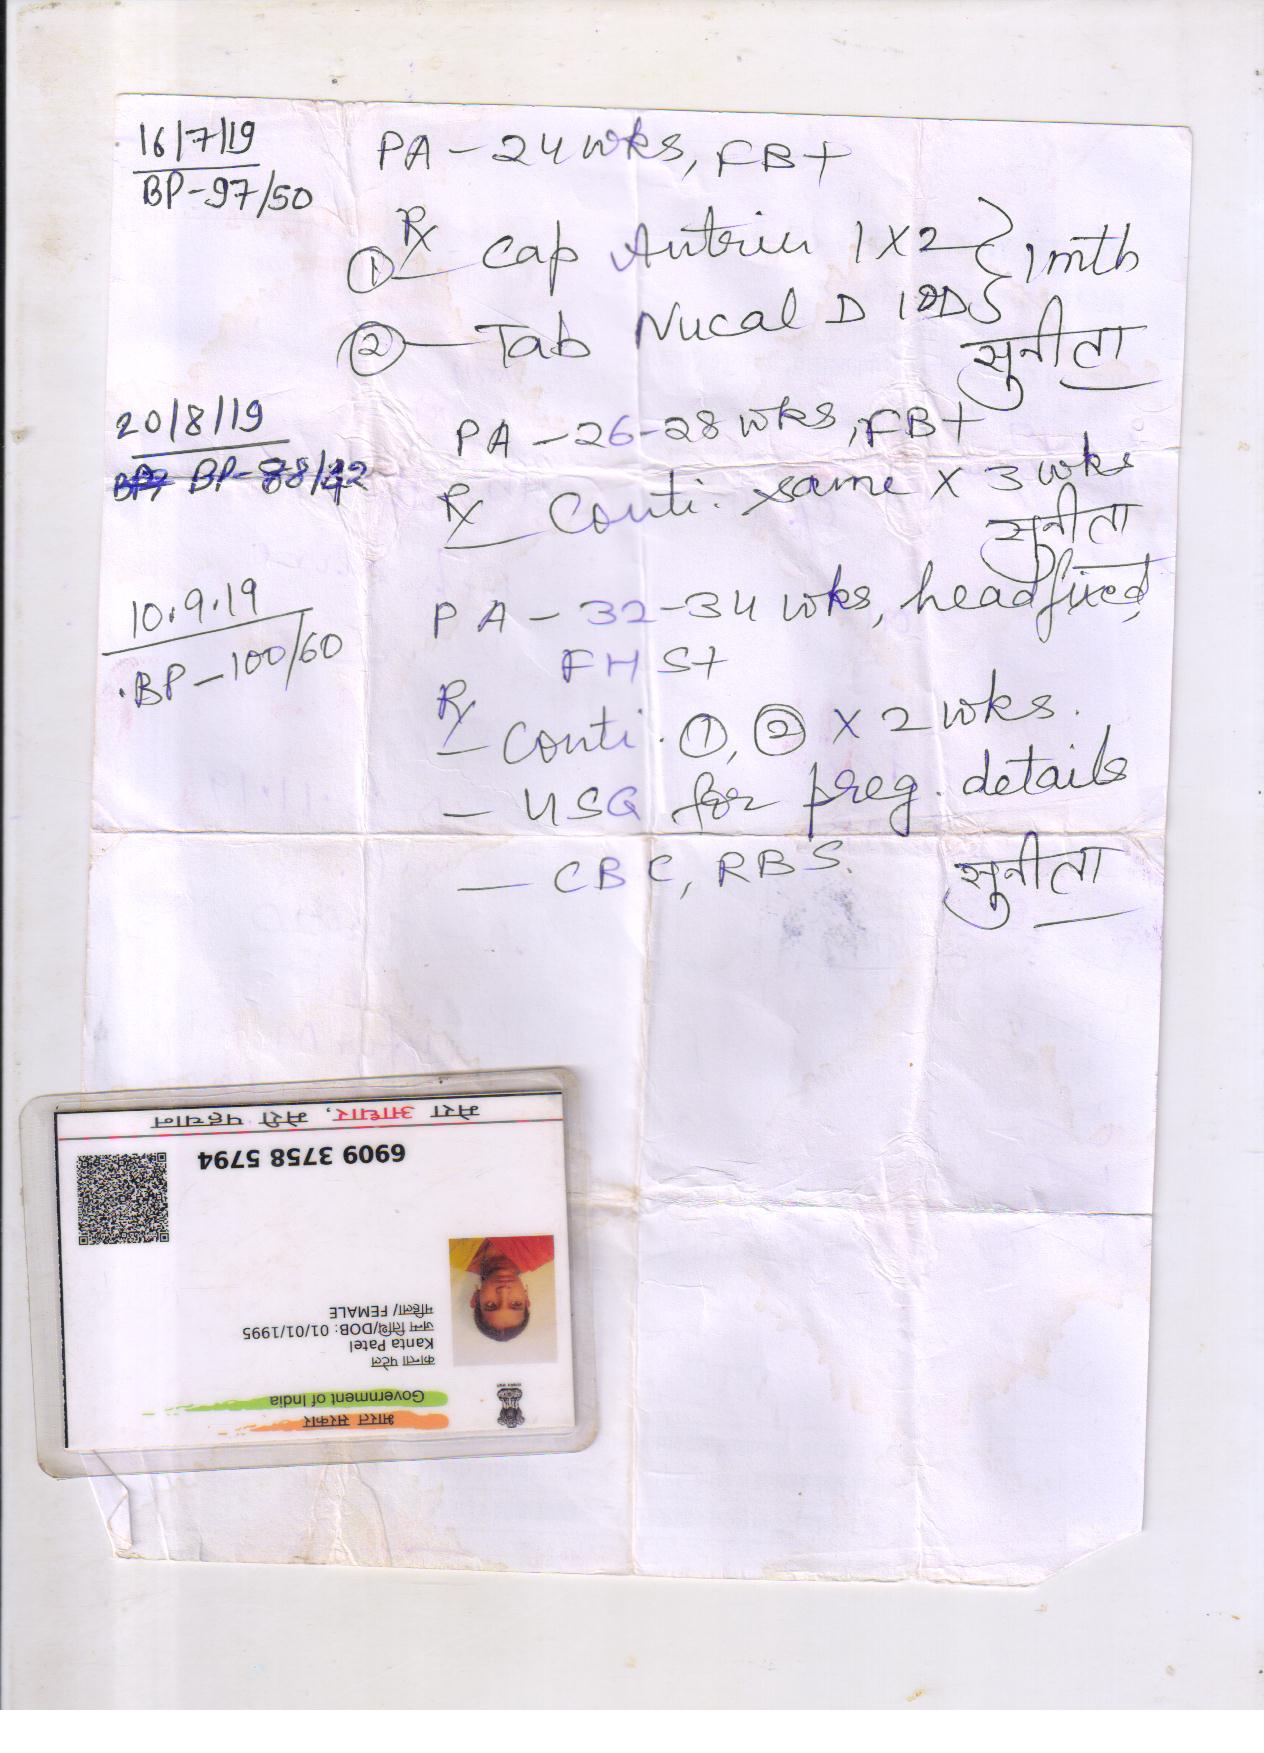 16/7/19
BP-97/50
PA - 24 wks, FB+
Rx
① Cap Autrin 1 X 2 } 1 mth
② Tab Nucal D 1 OD
सुनीता
20/8/19
BP-88/42
PA - 26-28 wks, FB+
Rx Conti. same X 3 wks
सुनीता
10.9.19
BP - 100/60
PA - 32-34 wks, head fixed,
FHS+
Rx
- Conti. ①, ② X 2 wks.
- USG for preg. details
- CBC, RBS.
सुनीता
भारत सरकार
Government of India
कान्ता पटेल
Kanta Patel
जन्म तिथि/DOB: 01/01/1995
महिला/ FEMALE
6909 3758 5794
मेरा आधार, मेरी पहचान